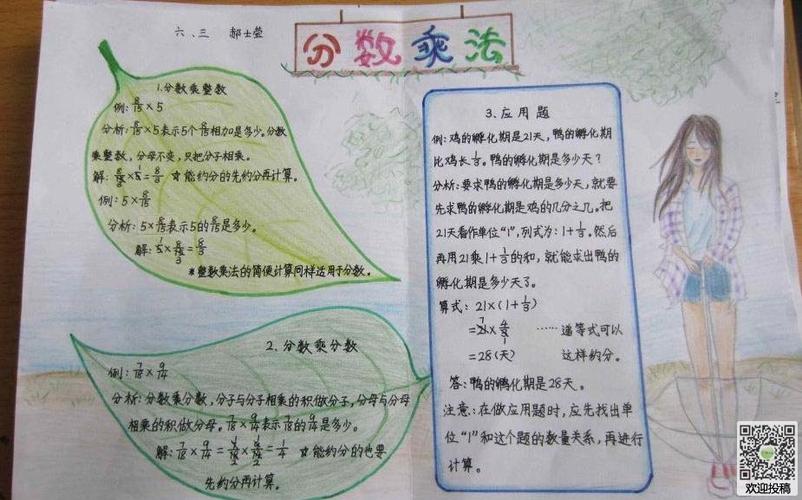 六、三 郝士莹
分数乘法
1.分数乘整数
例: 8/15×5
分析: 8/15×5表示5个8/15相加是多少。分数
乘整数，分母不变，只把分子相乘。
解: 8/15×5=8/3 ☆能约分的先约分再计算。
例: 5×8/15
分析: 5×8/15表示5的8/15是多少。
解: 5×8/15=8/3
*整数乘法的简便计算同样适用于分数。
2.分数乘分数
例: 7/18×9/14
分析: 分数乘分数，分子与分子相乘的积做分子，分母与分母
相乘的积做分母。7/18×9/14表示7/18的9/14是多少。
解: 7/18×9/14=7/18×9/14=1/4 ☆能约分的也要
先约分再计算。
3.应用题
例: 鸡的孵化期是21天，鸭的孵化期
比鸡长1/3。鸭的孵化期是多少天？
分析: 要求鸭的孵化期是多少天，就要
先求鸭的孵化期是鸡的几分之几。把
21天看作单位“1”，列式为: 1+1/3。然后
再用21乘1+1/3的和，就能求出鸭的
孵化期是多少天了。
算式: 21×(1+1/3)
=21×4/3 ……递等式可以
=28(天) 这样约分。
答: 鸭的孵化期是28天。
注意: 在做应用题时，应先找出单
位“1”和这个题的数量关系，再进行
计算。
欢迎投稿